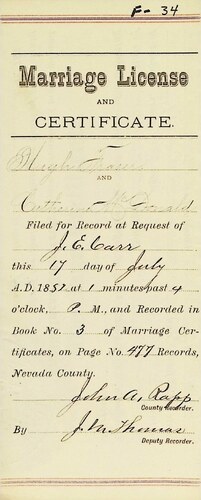 F - 34
Marriage License
AND
CERTIFICATE.
Hugh
AND
Catherine McDonald
Filed for Record at Request of
J. E. Carr
this 17 day of July
A.D. 1882 at 1 minutes past 4
o'clock, P. M., and Recorded in
Book No. 3 of Marriage Cer-
tificates, on Page No. 477 Records,
Nevada County.
John A. Rapp
County Recorder.
By J. M. Thomas
Deputy Recorder.